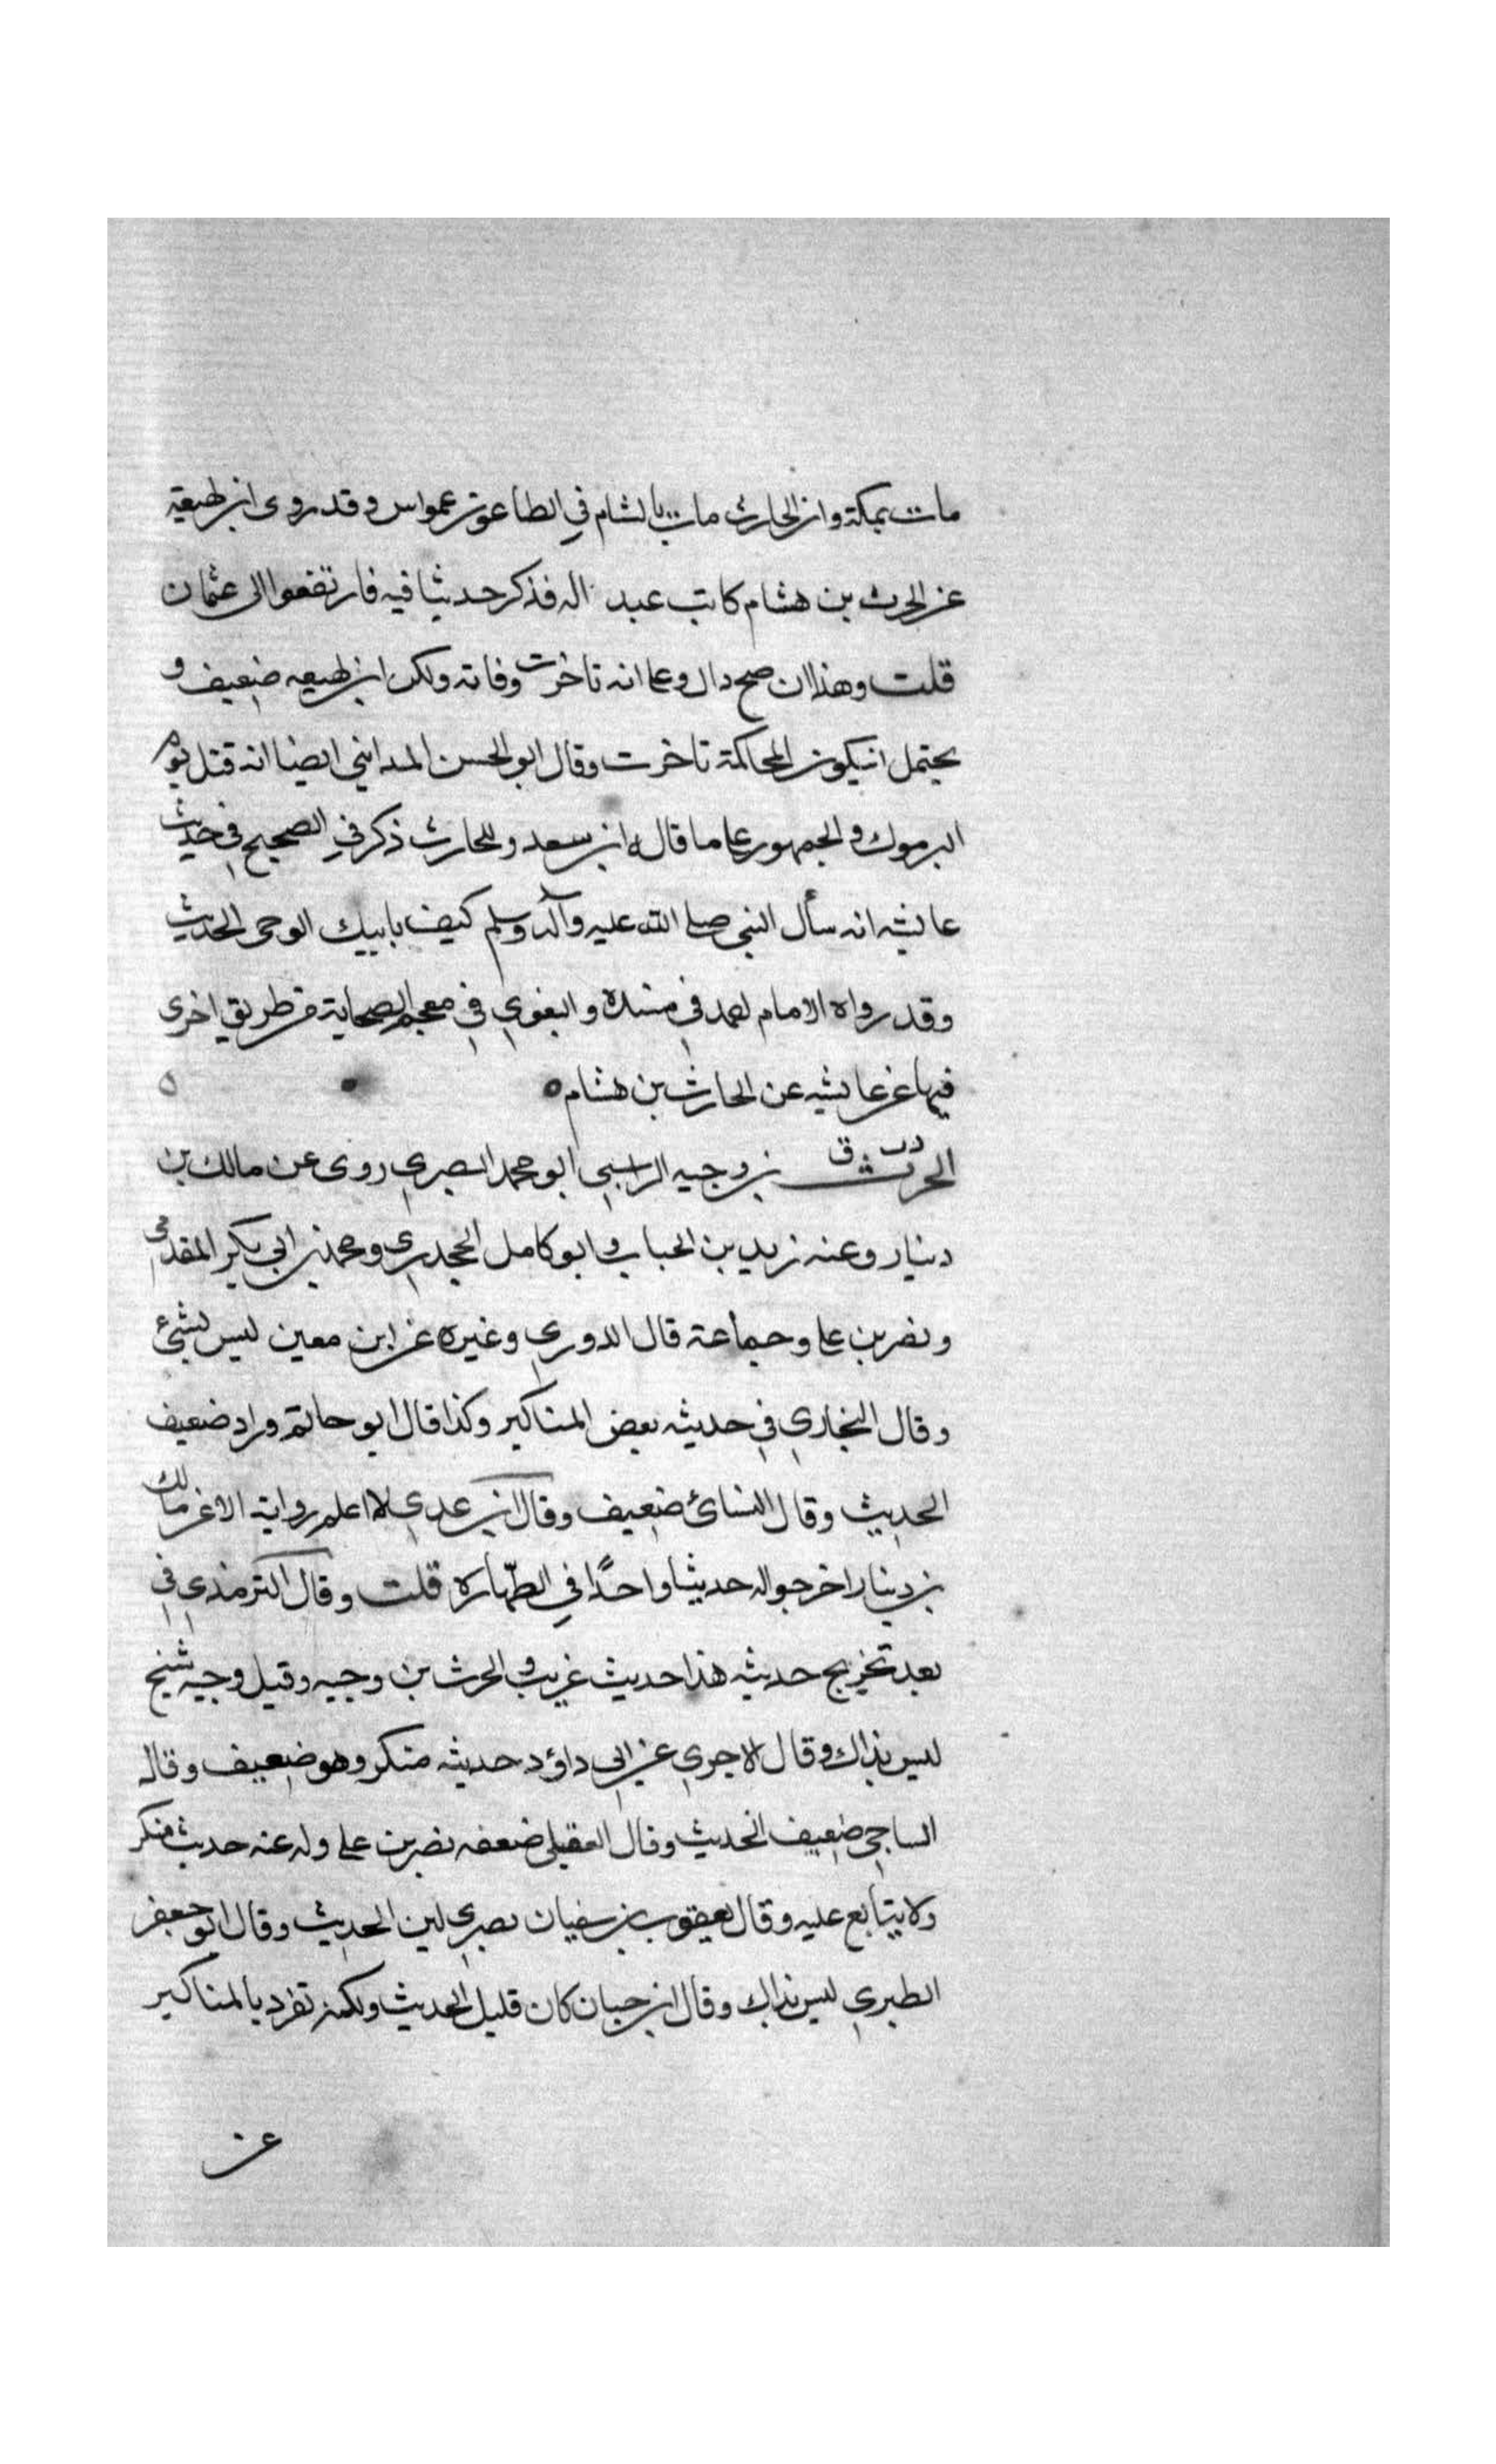 مات بمكة وان الحارث مات بالشام في الطاعون عمواس وقد روى ابن لهيعة
عن الحرث بن هشام كاتب عبد اله فذكر حديثا فيه فارتفعوا الى عثمان
قلت وهذا ان صح دال وعلى انه تاخرت وفاته ولكن ابن لهيعه ضعيف و
يحتمل انيكون المحاكمة تاخرت وقال ابو الحسن المدايني ايضا انه قتل يوم
اليرموك والجمهور على ما قاله ابن سعد وللحارث ذكر في الصحيح في حديث
عايشه انه سأل النبي صلى الله عليه وآله وسلم كيف ياتيك الوحى الحديث
وقد رواه الامام احمد في مسنده والبغوي في معجم الصحابة من طريق اخرى
فيها عن عايشه عن الحارث بن هشام ه
الحرث د ت ق بن وجيه الراسبي ابو محمد البصري روى عن مالك بن
دينار وعنه زيد بن الحباب وابو كامل الجحدري ومحمد بن ابي بكير المقدمي
ونصر بن على وجماعة قال الدوري وغيره عن ابن معين ليس بشئ
وقال البخاري في حديثه بعض المناكير وكذا قال ابو حاتم وزاد ضعيف
الحديث وقال النسائ ضعيف وقال ابن عدي لا اعلم رواية الا عن مالك
بن دينار اخرجوا له حديثا واحدًا في الطّهارة قلت وقال الترمذي في
بعد تخريج حديثه هذا حديث غريب والحرث بن وجيه وقيل وجيه شيخ
ليس بذاك وقال الاجري عن ابي داؤد حديثه منكر وهو ضعيف وقال
الساجي ضعيف الحديث وقال العقيلي ضعفه نصر بن على وله عنه حديث منكر
ولا يتابع عليه وقال يعقوب بن سفيان بصرى لين الحديث وقال ابو جعفر
الطبري ليس بذاك وقال ابن حبان كان قليل الحديث ولكنه تفرد بالمناكير
عن